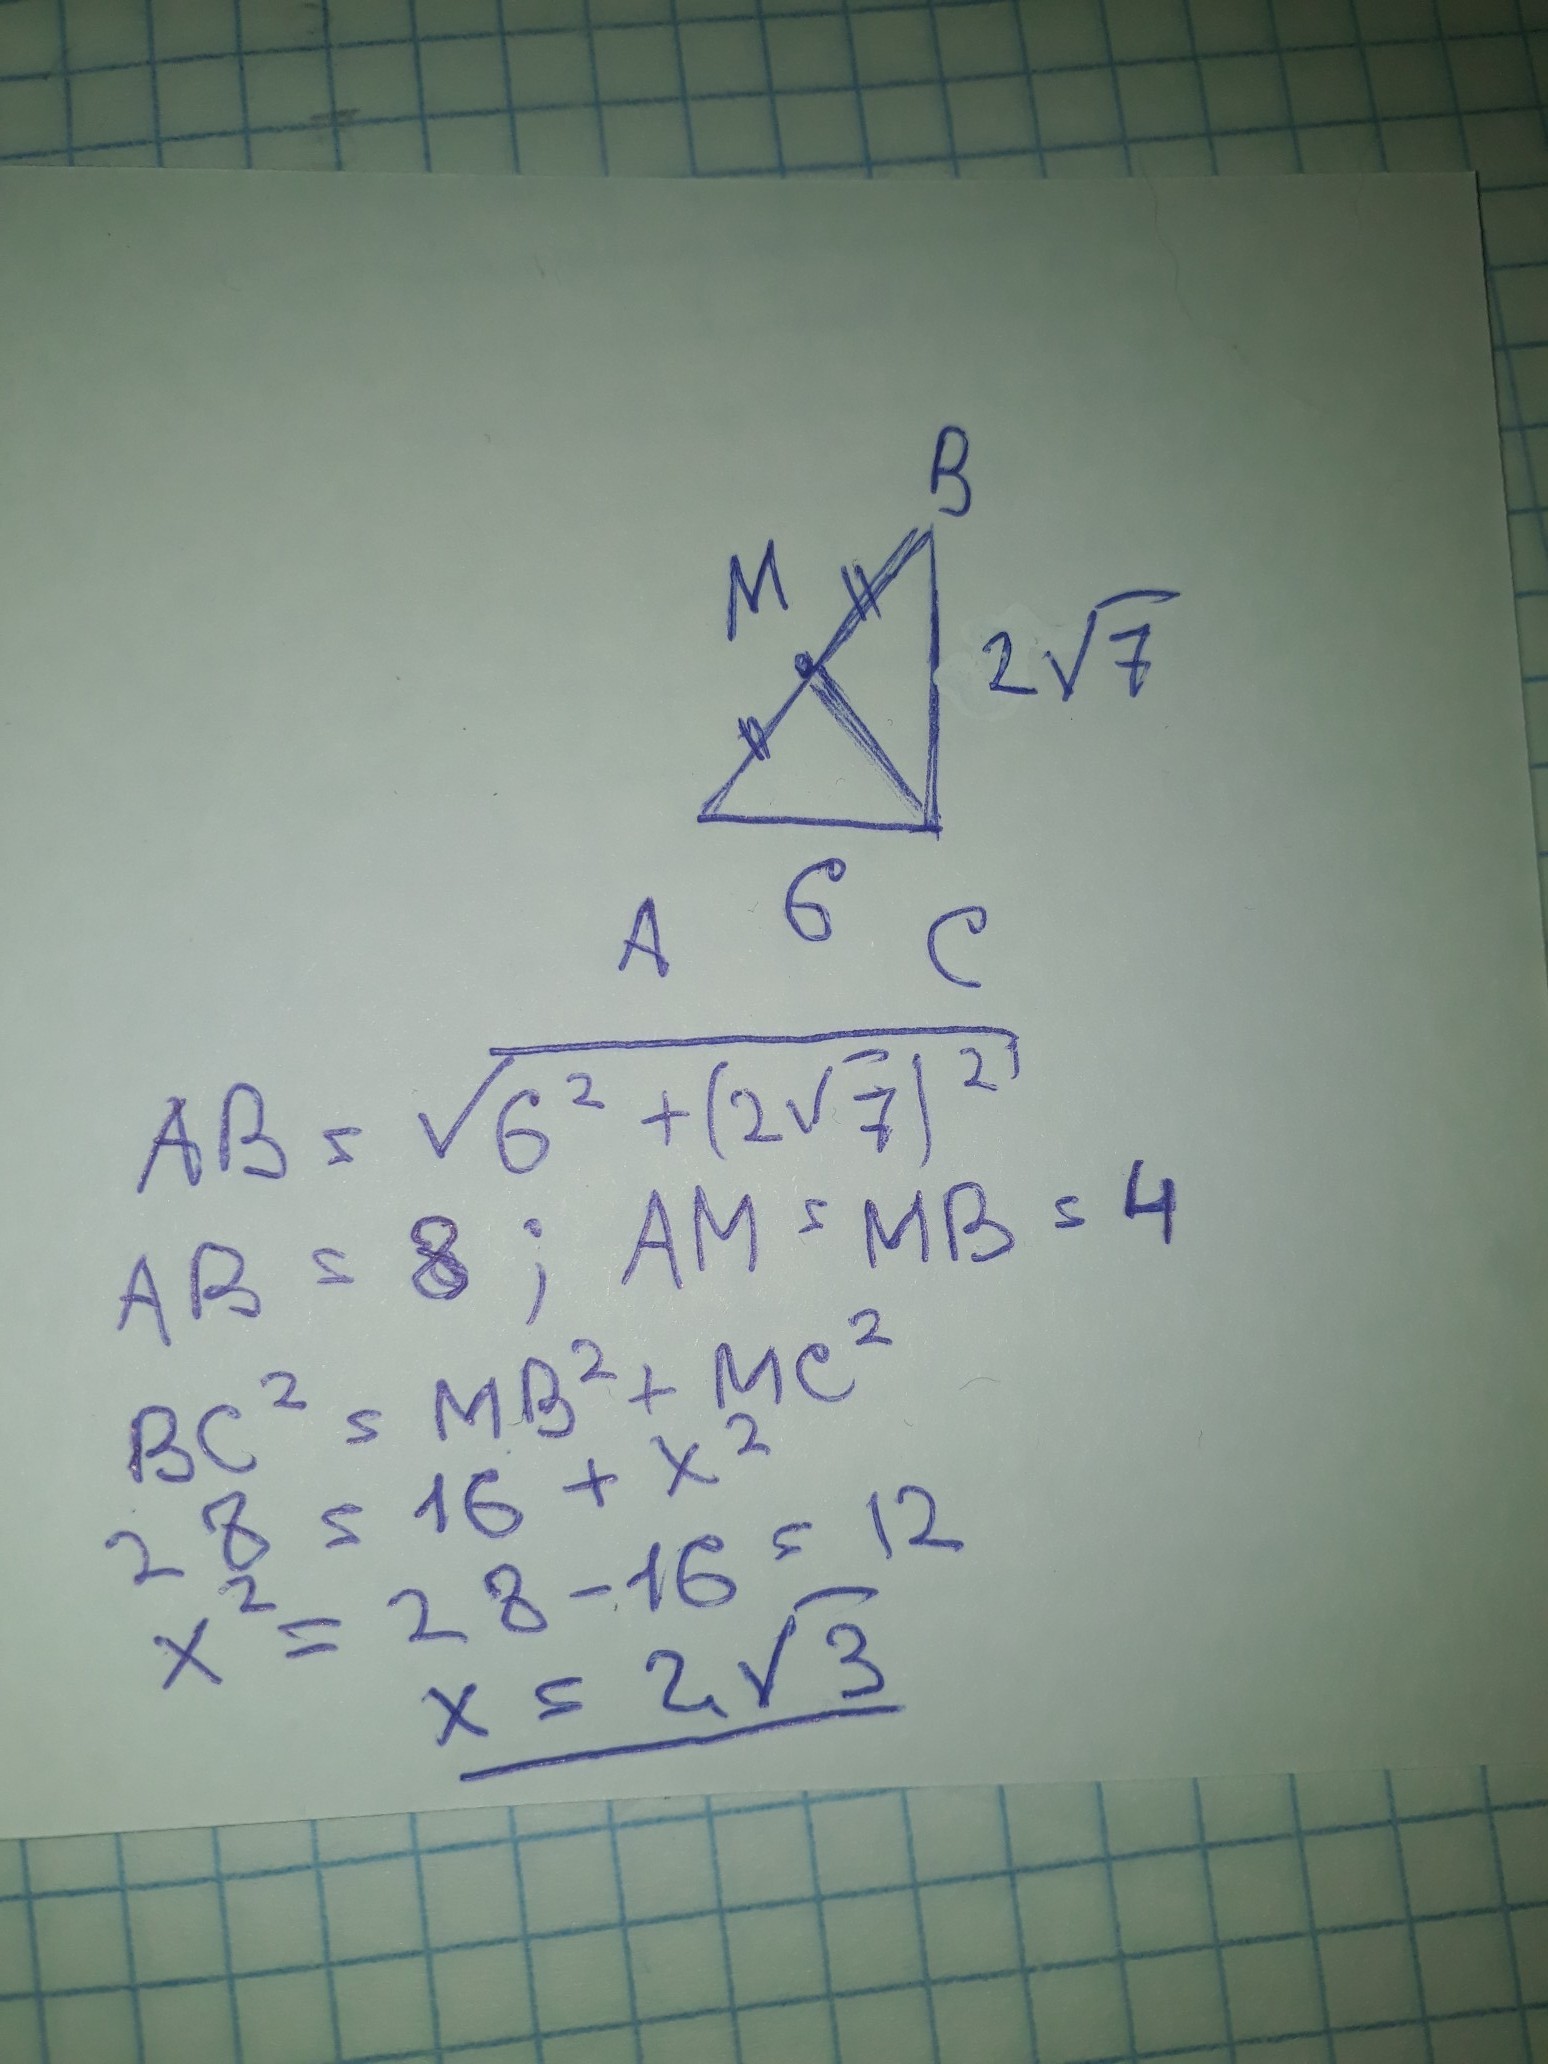 B
M
2√7
6
A
C
AB = √6² + (2√7)²
AB = 8; AM = MB = 4
BC² = MB² + MC²
28 = 16 + x²
x² = 28 - 16 = 12
x = 2√3